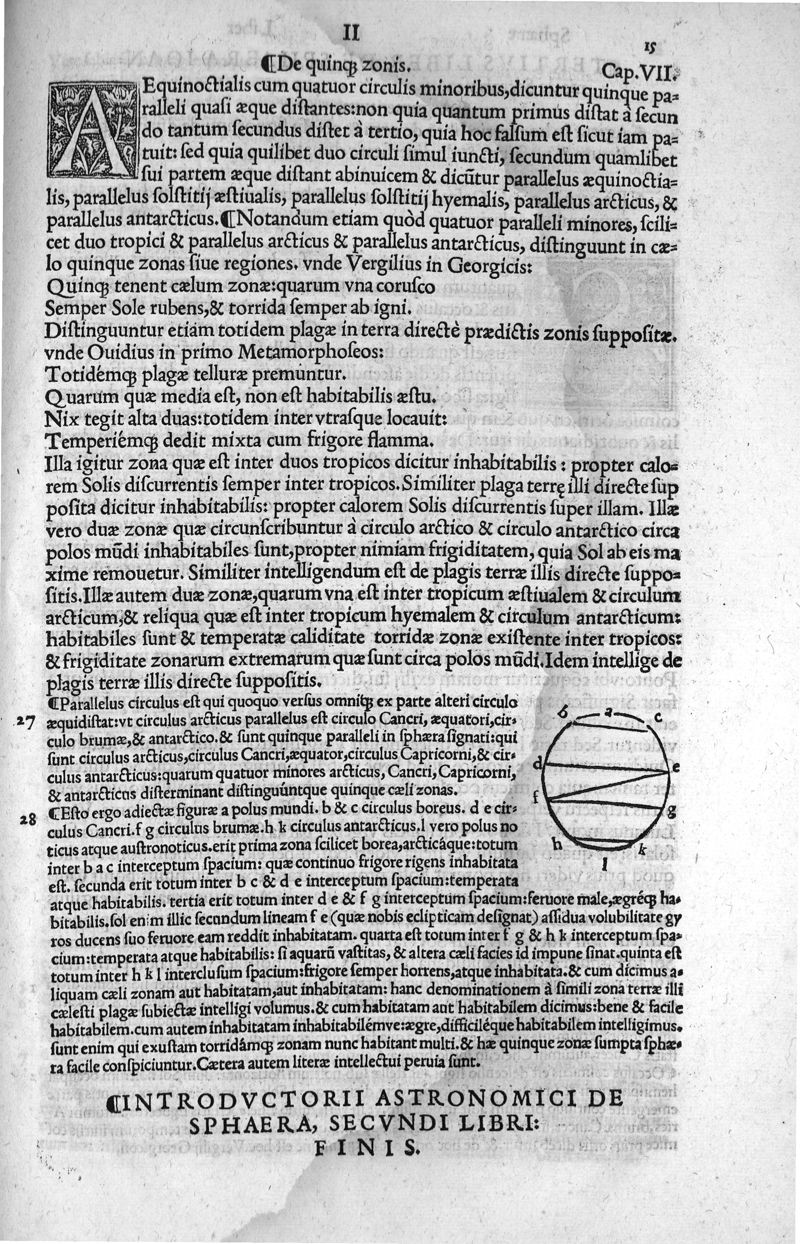 II
15
¶De quinqȝ zonis.
Cap.VII.
AEquinoctialis cum quatuor circulis minoribus,dicuntur quinque pa=
ralleli quaſi æque diſtantes:non quia quantum primus diſtat à ſecun
do tantum ſecundus diſtet à tertio, quia hoc falſum eſt ſicut iam pa=
tuit: ſed quia quilibet duo circuli ſimul iuncti, ſecundum quamlibet
ſui partem æque diſtant abinuicem & dicũtur parallelus æquinoctia=
lis, parallelus ſolſtitij æſtiualis, parallelus ſolſtitij hyemalis, parallelus arcticus, &
parallelus antarcticus.¶Notandum etiam quòd quatuor paralleli minores, ſcili=
cet duo tropici & parallelus arcticus & parallelus antarcticus, diſtinguunt in cæ=
lo quinque zonas ſiue regiones. vnde Vergilius in Georgicis:
Quinqȝ tenent cælum zonæ:quarum vna coruſco
Semper Sole rubens,& torrida ſemper ab igni.
Diſtinguuntur etiam totidem plagæ in terra directè prædictis zonis ſuppoſitæ.
vnde Ouidius in primo Metamorphoſeos:
Totidémqȝ plagæ telluræ premuntur.
Quarum quæ media eſt, non eſt habitabilis æſtu.
Nix tegit alta duas:totidem inter vtraſque locauit:
Temperiémqȝ dedit mixta cum frigore flamma.
Illa igitur zona quæ eſt inter duos tropicos dicitur inhabitabilis : propter calo=
rem Solis diſcurrentis ſemper inter tropicos.Similiter plaga terrę illi directe ſup
poſita dicitur inhabitabilis: propter calorem Solis diſcurrentis ſuper illam. Illæ
vero duæ zonæ quæ circunſcribuntur à circulo arctico & circulo antarctico circa
polos mũdi inhabitabiles ſunt,propter nimiam frigiditatem, quia Sol ab eis ma
xime remouetur. Similiter intelligendum eſt de plagis terræ illis directe ſuppo=
ſitis.Illæ autem duæ zonæ,quarum vna eſt inter tropicum æſtiualem & circulum
arcticum,& reliqua quæ eſt inter tropicum hyemalem & circulum antarcticum:
habitabiles ſunt & temperatæ caliditate torridæ zonæ exiſtente inter tropicos:
& frigiditate zonarum extremarum quæ ſunt circa polos mũdi.Idem intellige de
plagis terræ illis directe ſuppoſitis.
¶Parallelus circulus eſt qui quoquo verſus omniqȝ ex parte alteri circulo
27 æquidiſtat:vt circulus arcticus parallelus eſt circulo Cancri, æquatori,cir=
culo brumæ,& antarctico.& ſunt quinque paralleli in ſphæra ſignati:qui
ſunt circulus arcticus,circulus Cancri,æquator,circulus Capricorni,& cir=
culus antarcticus:quarum quatuor minores arcticus, Cancri, Capricorni,
& antarcticus diſterminant diſtinguũntque quinque cæli zonas.
28 ¶Eſto ergo adiectæ figuræ a polus mundi. b & c circulus boreus. d e cir=
culus Cancri.f g circulus brumæ.h k circulus antarcticus.l vero polus no
ticus atque auſtronoticus.erit prima zona ſcilicet borea,arcticáque:totum
inter b a c interceptum ſpacium: quæ continuo frigore rigens inhabitata
eſt. ſecunda erit totum inter b c & d e interceptum ſpacium:temperata
atque habitabilis. tertia erit totum inter d e & f g interceptum ſpacium:feruore male,ægréqȝ ha=
bitabilis.ſol enim illic ſecundum lineam f e (quæ nobis eclipticam deſignat) aſſidua volubilitate gy
ros ducens ſuo feruore eam reddit inhabitatam. quarta eſt totum inter f g & h k interceptum ſpa=
cium:temperata atque habitabilis: ſi aquarũ vaſtitas, & altera cæli facies id impune ſinat.quinta eſt
totum inter h k l incluſum ſpacium:frigore ſemper horrens,atque inhabitata.& cum dicimus a=
liquam cæli zonam aut habitatam,aut inhabitatam: hanc denominationem à ſimili zona terræ illi
cæleſti plagæ ſubiectæ intelligi volumus.& cum habitatam aut habitabilem dicimus:bene & facile
habitabilem.cum autem inhabitatam inhabitabilémve:ægre,difficiléque habitabilem intelligimus.
ſunt enim qui exuſtam torridámqȝ zonam nunc habitant multi.& hæ quinque zonæ ſumpta ſphæ=
ra facile conſpiciuntur.Cætera autem literæ intellectui peruia ſunt.
b a c
d e
f g
h k
l
¶INTRODVCTORII ASTRONOMICI DE
SPHAERA, SECVNDI LIBRI:
FINIS.